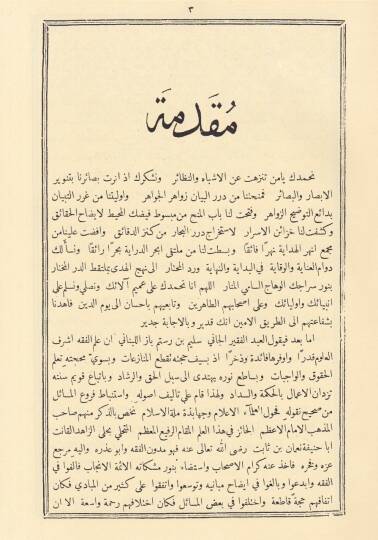 ٣
مُقَدمَة
نحمدك يا من تنزهت عن الاشباه والنظائر ونشكرك اذ انرت بصائرنا بتنوير
الابصار والبصائر فمنحتنا من درر البيان زواهر الجواهر واوليتنا من غرر التبيان
بدائع التوضيح الزواهر وفتحت لنا باب المنح من مبسوط فيضك المحيط لايضاح الحقائق
وكشفت لنا خزائن الاسرار لاستخراج درر البحار من كنز الدقائق وافضت علينا من
مجمع انهر الهداية نهرًا فائقا وبسطت لنا من ملتقى ابحر الدراية بحرًا رائقا ونسألك
دوام العناية والوقاية في البداية والنهاية ورد المحتار الى نهج الهدى بملتقط الدر المختار
بنور سراجك الوهاج السامي المنار اللهم انا نحمدك على عميم آلائك ونصلي ونسلم على
انبيائك واوليائك وعلى اصحابهم الطاهرين وتابعيهم باحسان الى يوم الدين فاهدنا
بشفاعتهم الى الطريق الامين انك قدير وبالاجابة جدير
اما بعد فيقول العبد الفقير الجاني سليم بن رستم باز اللبناني ان علم الفقه اشرف
العلوم قدرًا واوفرها فائدة وذخرًا اذ بسيف حجته تقطع المنازعات وبسوي محجته تعلم
الحقوق والواجبات وبساطع نوره يهتدى الى سبل الحق والرشاد وباتباع قويم سننه
تزدان الاعمال بالحكمة والسداد ولهذا قام على تاليف اصوله واستنباط فروع المسائل
من صحيح نقوله فحول العلماء الاعلام وجهابذة ملة الاسلام نخص بالذكر منهم صاحب
المذهب الامام الاعظم الحائز في هذا العلم المقام الرفيع المعظم المتحلي بحلى الزاهد القانت
ابا حنيفة نعمان بن ثابت رضي الله تعالى عنه فهو مدون الفقه وابو عذره واليه مرجع
عزه وفخره فاخذ عنه كرام الاصحاب واستضاء بنور مشكاته الائمة الانجاب فالفوا في
الفقه وابدعوا وبالغوا في ايضاح مبانيه وتوسعوا واتفقوا على كثير من المبادي فكان
اتفاقهم حجة قاطعة واختلفوا في بعض المسائل فكان اختلافهم رحمة واسعة الا ان